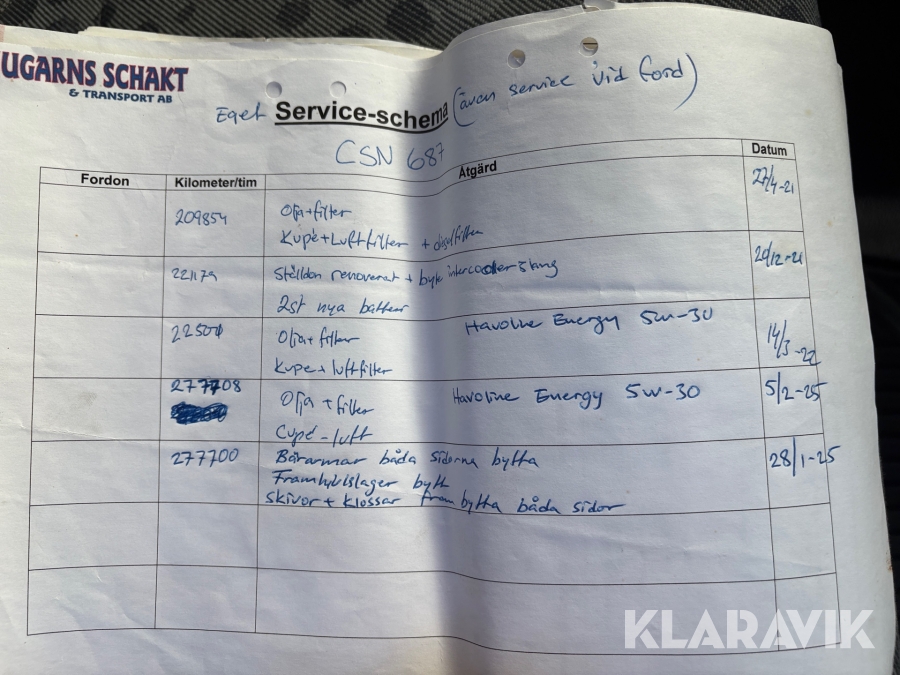 UGARNS SCHAKT
& TRANSPORT AB
Eget Service-schema (även service vid Ford)
CSN 687
Fordon Kilometer/tim Åtgärd Datum
209854 Olja+filter 27/4-21
Kupé+Luftfilter + dieselfilter
221179 Ställdon renoverat + byte intercoolerslang 20/12-21
2st nya batterier
Olja+filter Havoline Energy 5w-30 14/3-22
Kupe+luftfilter
277708 Olja+filter Havoline Energy 5w-30 5/2-25
Cupé-luft
277700 Bärarmar båda sidorna bytta 28/1-25
Framhjulslager bytt
skivor + klossar fram bytta båda sidor
KLARAVIK